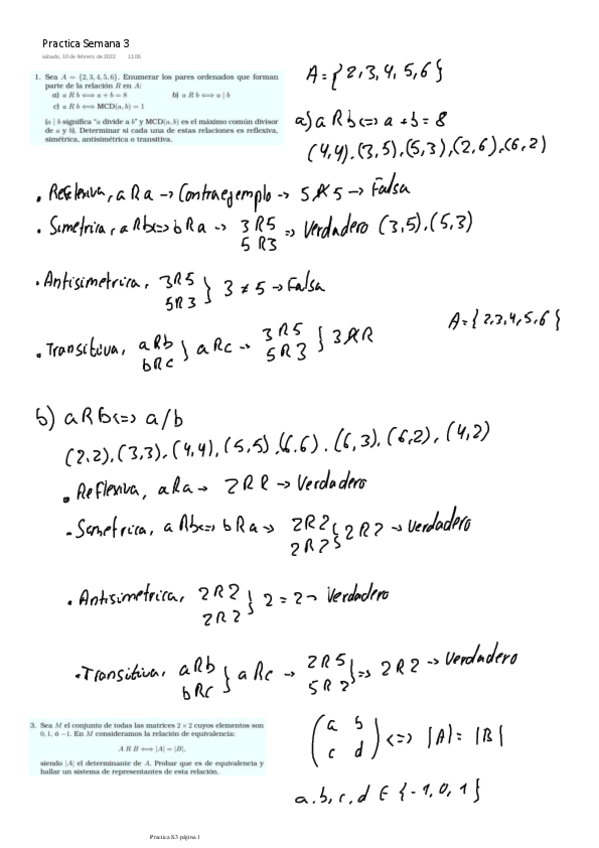 Practica Semana 3
sábado, 19 de febrero de 2022 11:06
1. Sea A = {2, 3, 4, 5, 6}. Enumerar los pares ordenados que forman
parte de la relación R en A:
a) a R b ⟺ a + b = 8 b) a R b ⟺ a | b
c) a R b ⟺ MCD(a, b) = 1
(a | b significa "a divide a b" y MCD(a, b) es el máximo común divisor
de a y b). Determinar si cada una de estas relaciones es reflexiva,
simétrica, antisimétrica o transitiva.
A = {2,3,4,5,6}
a) a R b <=> a + b = 8
(4,4),(3,5),(5,3),(2,6),(6,2)
• Reflexiva, a R a → Contraejemplo → 5 R̸ 5 → Falsa
• Simetrica, a R b <=> b R a → 3 R 5
5 R 3 => Verdadero (3,5),(5,3)
• Antisimetrica, 3 R 5
5 R 3 } 3 ≠ 5 → Falsa
A = {2,3,4,5,6}
• Transitiva, a R b
b R c } a R c → 3 R 5
5 R 3 } 3 R̸ R
b) a R b <=> a/b
(2,2),(3,3),(4,4),(5,5),(6,6),(6,3),(6,2),(4,2)
• Reflexiva, a R a → 2 R R → Verdadero
• Simetrica, a R b <=> b R a → 2 R 2
2 R 2 } 2 R 2 → Verdadero
• Antisimetrica, 2 R 2
2 R 2 } 2 = 2 → Verdadero
• Transitiva, a R b
b R c } a R c → 2 R 5
5 R 2 } => 2 R 2 → Verdadero
3. Sea M el conjunto de todas las matrices 2 × 2 cuyos elementos son
0, 1, ó −1. En M consideramos la relación de equivalencia:
A R B ⟺ |A| = |B|,
siendo |A| el determinante de A. Probar que es de equivalencia y
hallar un sistema de representantes de esta relación.
( a b
c d ) <=> |A| = |B|
a,b,c,d ∈ {-1,0,1}
Practica S3 página 1